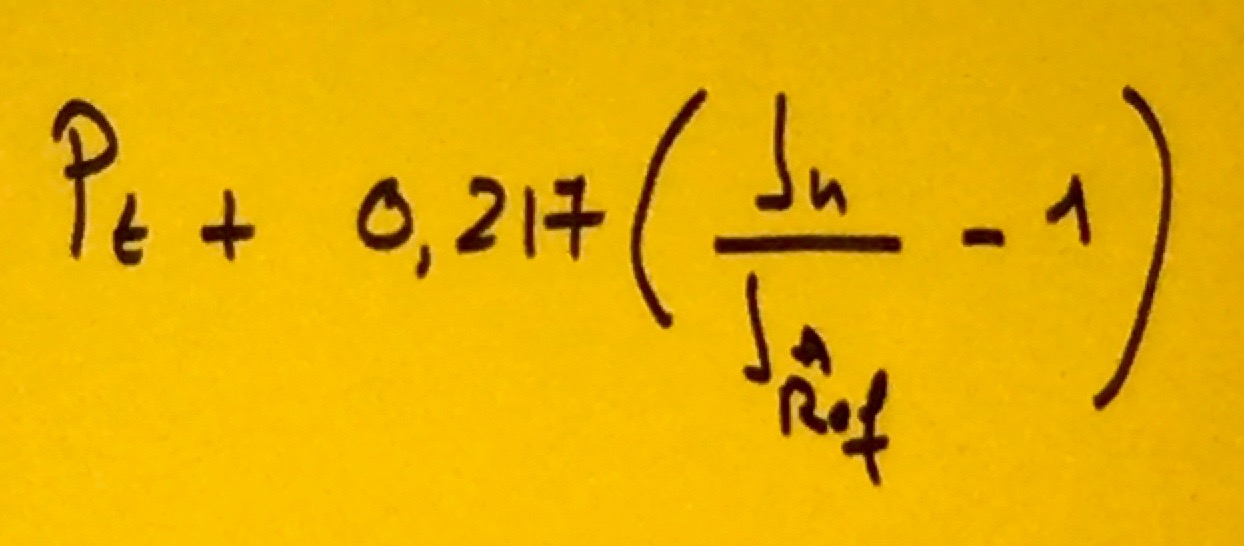 Pt + 0,217 ( Jn / Jn Ref - 1 )